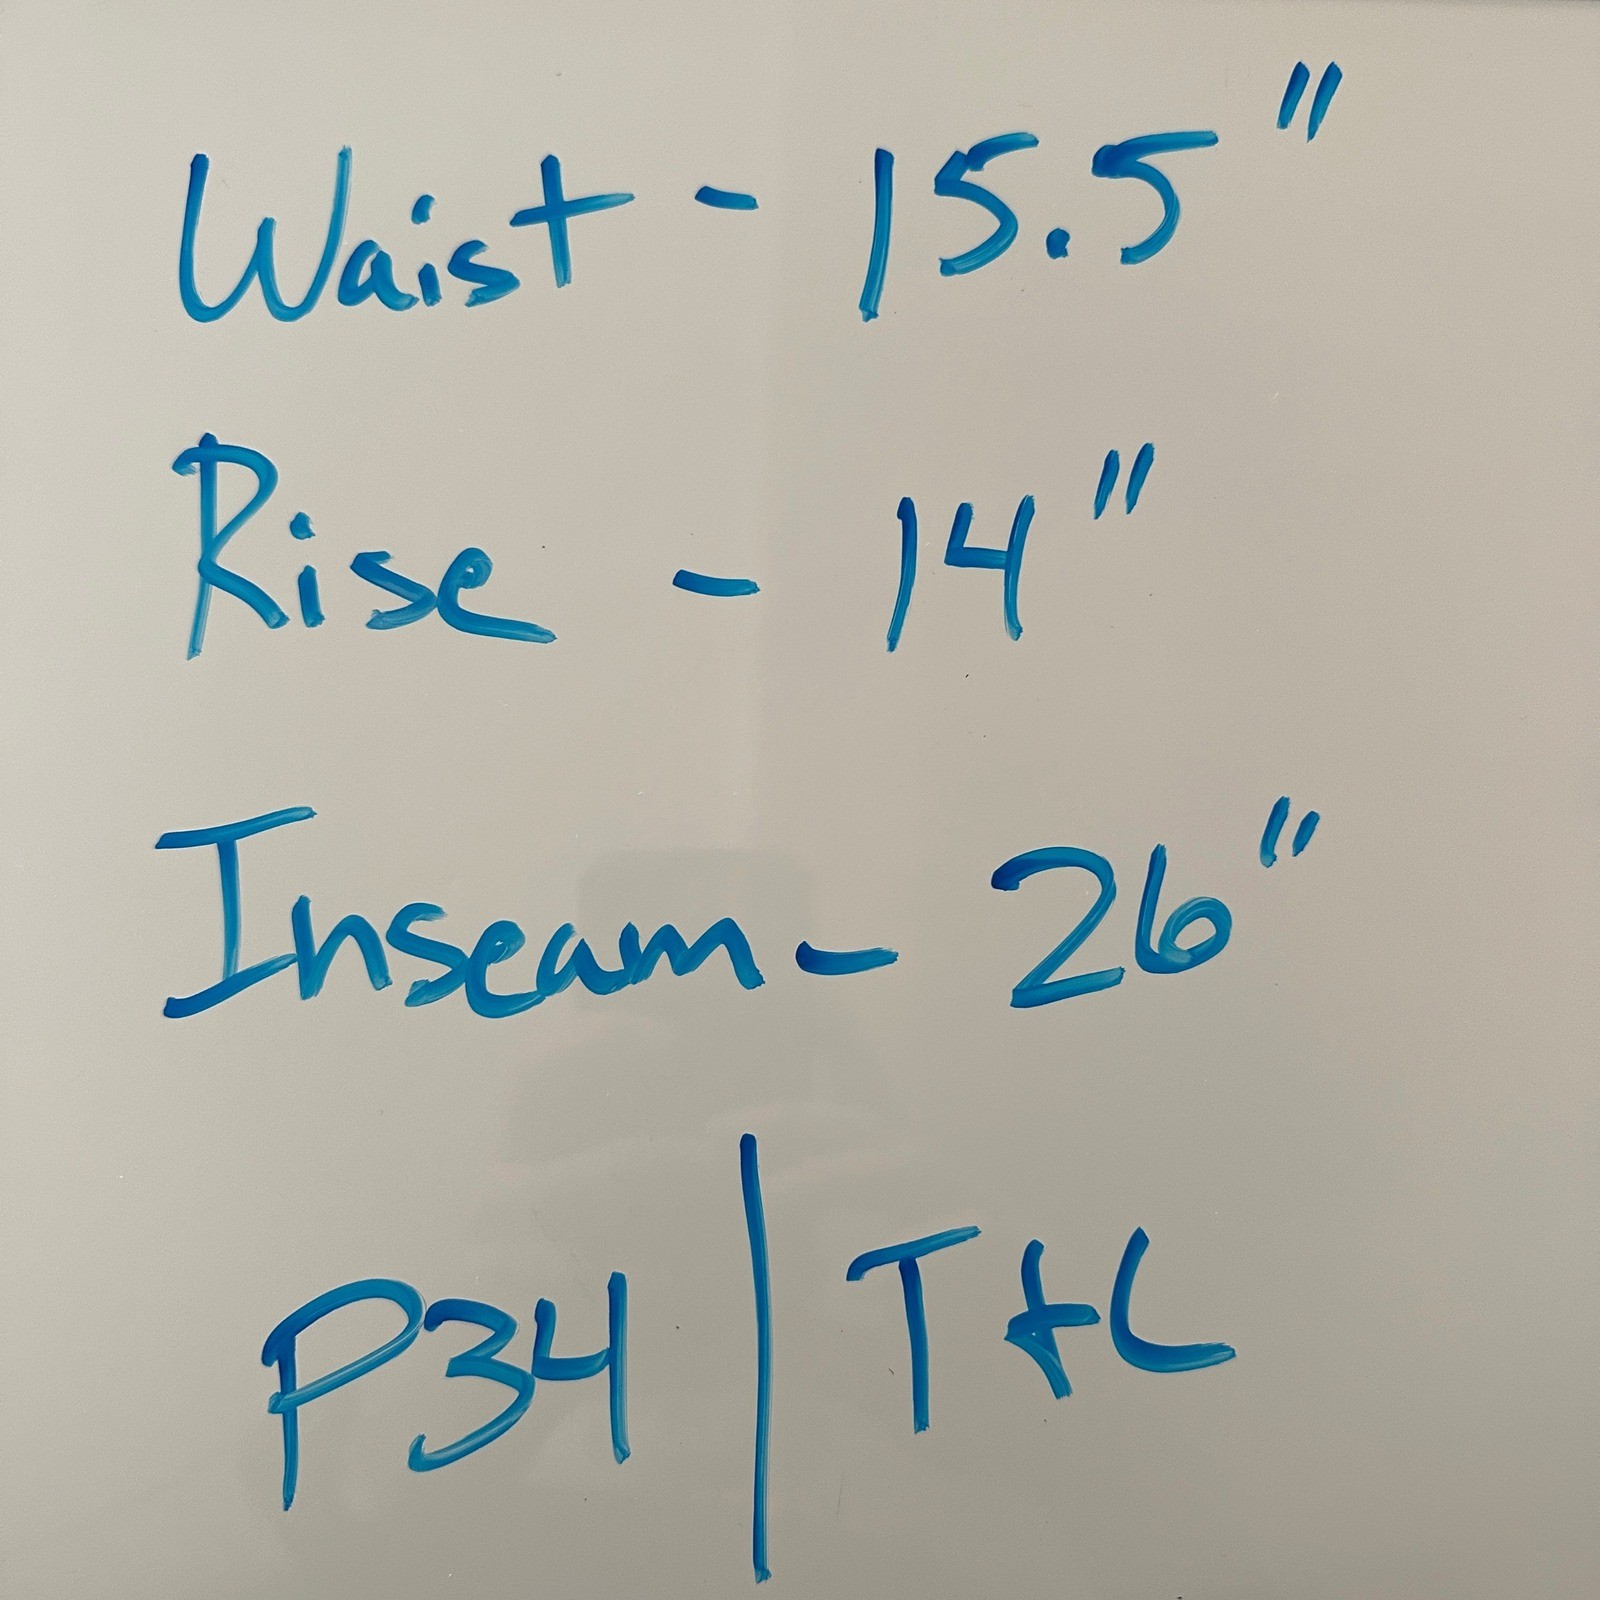 Waist - 15.5"
Rise - 14"
Inseam - 26"
P34 | T+L